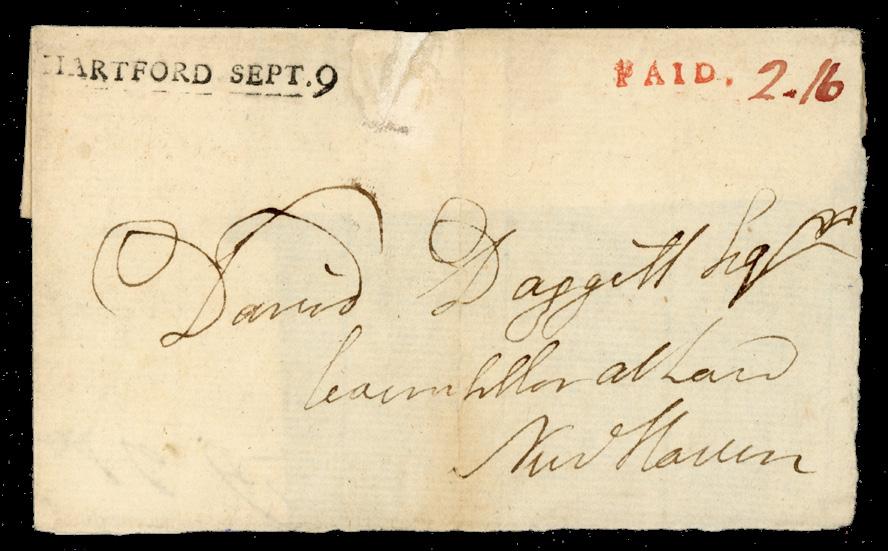 HARTFORD SEPT. 9
PAID. 2.16
David Daggett Esqr
Counsellor at Law
New Haven